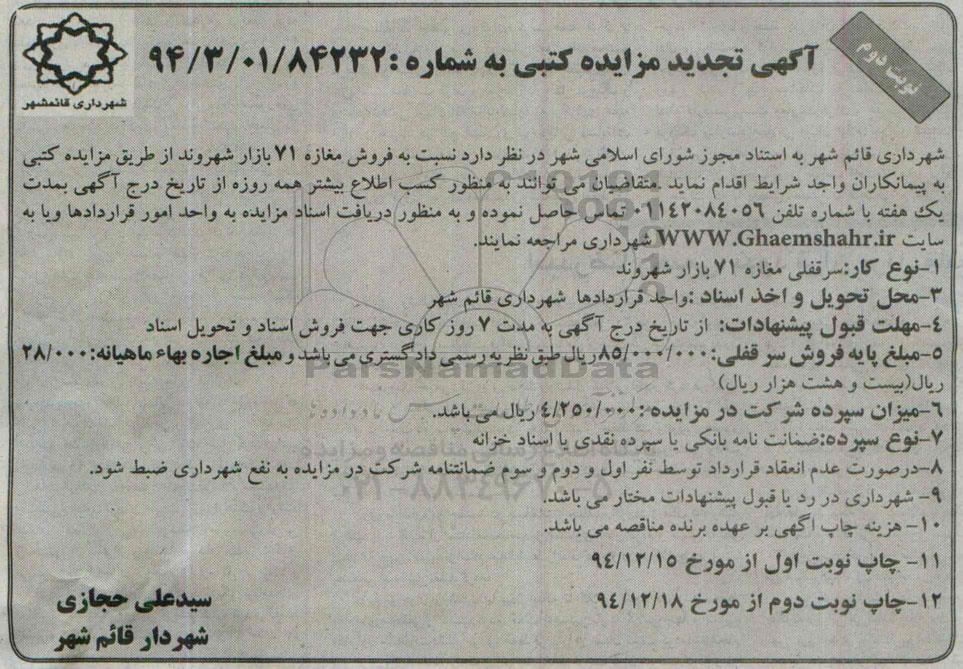 نوبت دوم
آگهی تجدید مزایده کتبی به شماره :۹۴/۳/۰۱/۸۴۲۳۲
شهرداری قائمشهر
شهرداری قائم شهر به استناد مجوز شورای اسلامی شهر در نظر دارد نسبت به فروش مغازه ۷۱ بازار شهروند از طریق مزایده کتبی
به پیمانکاران واجد شرایط اقدام نماید .متقاضیان می توانند به منظور کسب اطلاع بیشتر همه روزه از تاریخ درج آگهی بمدت
یک هفته با شماره تلفن ۰۱۱۴۲۰۸۴۰۵۶ تماس حاصل نموده و به منظور دریافت اسناد مزایده به واحد امور قراردادها ویا به
سایت WWW.Ghaemshahr.ir شهرداری مراجعه نمایند.
۱-نوع کار:سرقفلی مغازه ۷۱ بازار شهروند
۳-محل تحویل و اخذ اسناد :واحد قراردادها شهرداری قائم شهر
۴-مهلت قبول پیشنهادات: از تاریخ درج آگهی به مدت ۷ روز کاری جهت فروش اسناد و تحویل اسناد
۵-مبلغ پایه فروش سر قفلی:۸۵/۰۰۰/۰۰۰ریال طبق نظریه رسمی دادگستری می باشد و مبلغ اجاره بهاء ماهیانه:۲۸/۰۰۰
ریال(بیست و هشت هزار ریال)
۶-میزان سپرده شرکت در مزایده :۴/۲۵۰/۰۰۰ ریال می باشد.
۷-نوع سپرده:ضمانت نامه بانکی یا سپرده نقدی یا اسناد خزانه
۸-درصورت عدم انعقاد قرارداد توسط نفر اول و دوم و سوم ضمانتنامه شرکت در مزایده به نفع شهرداری ضبط شود.
۹- شهرداری در رد یا قبول پیشنهادات مختار می باشد.
۱۰- هزینه چاپ آگهی بر عهده برنده مناقصه می باشد.
۱۱- چاپ نوبت اول از مورخ ۹۴/۱۲/۱۵
۱۲-چاپ نوبت دوم از مورخ ۹۴/۱۲/۱۸
سیدعلی حجازی
شهردار قائم شهر
ParsNamadData
۰۲۱-۸۸۳۴۹۶۷۰-۵